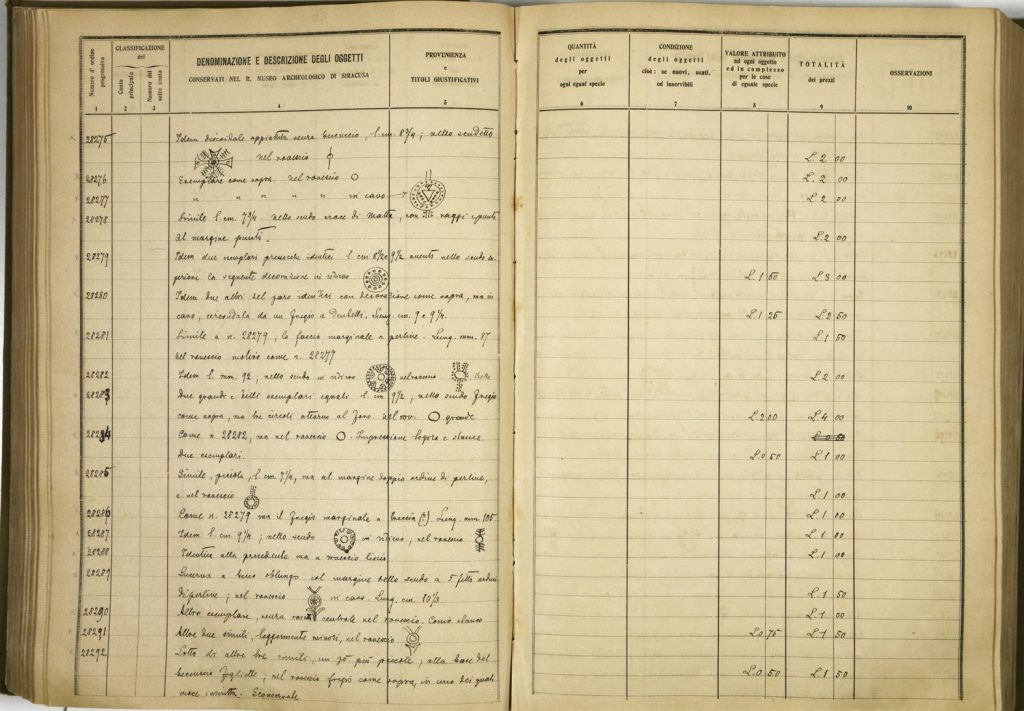 Numero d' ordine progressivo
CLASSIFICAZIONE
del
Conto principale
Numero del sotto conto
DENOMINAZIONE E DESCRIZIONE DEGLI OGGETTI
CONSERVATI NEL R. MUSEO ARCHEOLOGICO DI SIRACUSA
PROVENIENZA
e
TITOLI GIUSTIFICATIVI
QUANTITÀ
degli oggetti
per
ogni egual specie
CONDIZIONE
degli oggetti
cioè: se nuovi, usati,
od inservibili
VALORE ATTRIBUITO
ad ogni oggetto
ed in complesso
per le cose
di eguale specie
TOTALITÀ
dei prezzi
OSSERVAZIONI
1 2 3 4 5 6 7 8 9 10
28275 Idem discoidale appiattita senza beccuccio, l. cm. 8 3/4; nello scudetto
nel rovescio L. 2 00
28276 Esemplare come sopra nel rovescio O L. 2 00
28277 " " " " in cavo L. 2 00
28278 Simile l. cm. 7 3/4. nello scudo croce di Malta, con raggi e punti
al margine punti. L. 2 00
28279 Idem due esemplari pressoché identici l. cm 8 1/2 e 9 1/2 aventi nello scudo su-
periore la seguente decorazione in rilievo L. 1 50 L. 3 00
28280 Idem due altri del paro identici con decorazione come sopra, ma in
cavo, circondata da un fregio a dentelli. Lung. cm. 9 e 9 1/4. L. 1 25 L. 2 50
28281 Simile a n. 28279; la fascia marginale a perline. Lung. mm. 87 L. 1 50
nel rovescio motivo come n. 28277
28282 Idem l. mm. 92; nello scudo in rilievo nel rovescio L. 2 00
28283 Due grandi e belli esemplari eguali l. cm 9 1/2; nello scudo fregio
come sopra, ma tre circoli attorno al foro. nel rov. O grande L. 2 00 L. 4 00
28284 Come n 28282, ma nel rovescio O. Impressione logora e stanca
Due esemplari. L. 0 50 L. 1 00
28285 Simile, piccola, l. cm. 7 1/4, ma al margine doppio ordine di perline,
e nel rovescio L. 1 00
28286 Come n. 28279 ma il fregio marginale a treccia (?). Lung. mm. 105 L. 1 00
28287 Idem l. cm. 9 1/4; nello scudo in rilievo; nel rovescio L. 1 00
28288 Identica alla precedente ma a rovescio liscio L. 1 00
28289 Lucerna a becco oblungo col margine dello scudo a 5 fitti ordini
di perline; nel rovescio in cavo. Lung. cm. 10 1/3 L. 1 50
28290 Altro esemplare, senza centrale nel rovescio. L. 1 00
28291 Altre due simili, leggermente minori, nel rovescio L. 0 75 L. 1 50
28292 Lotto di altre tre simili, un po' più piccole; alla base del
beccuccio foglietta; nel rovescio fregio come sopra, in uno dei quali L. 0 50 L. 1 50
croce inscritta. Sconservate